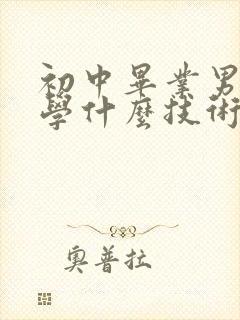 初中畢業男
學什麼技術
奧普拉